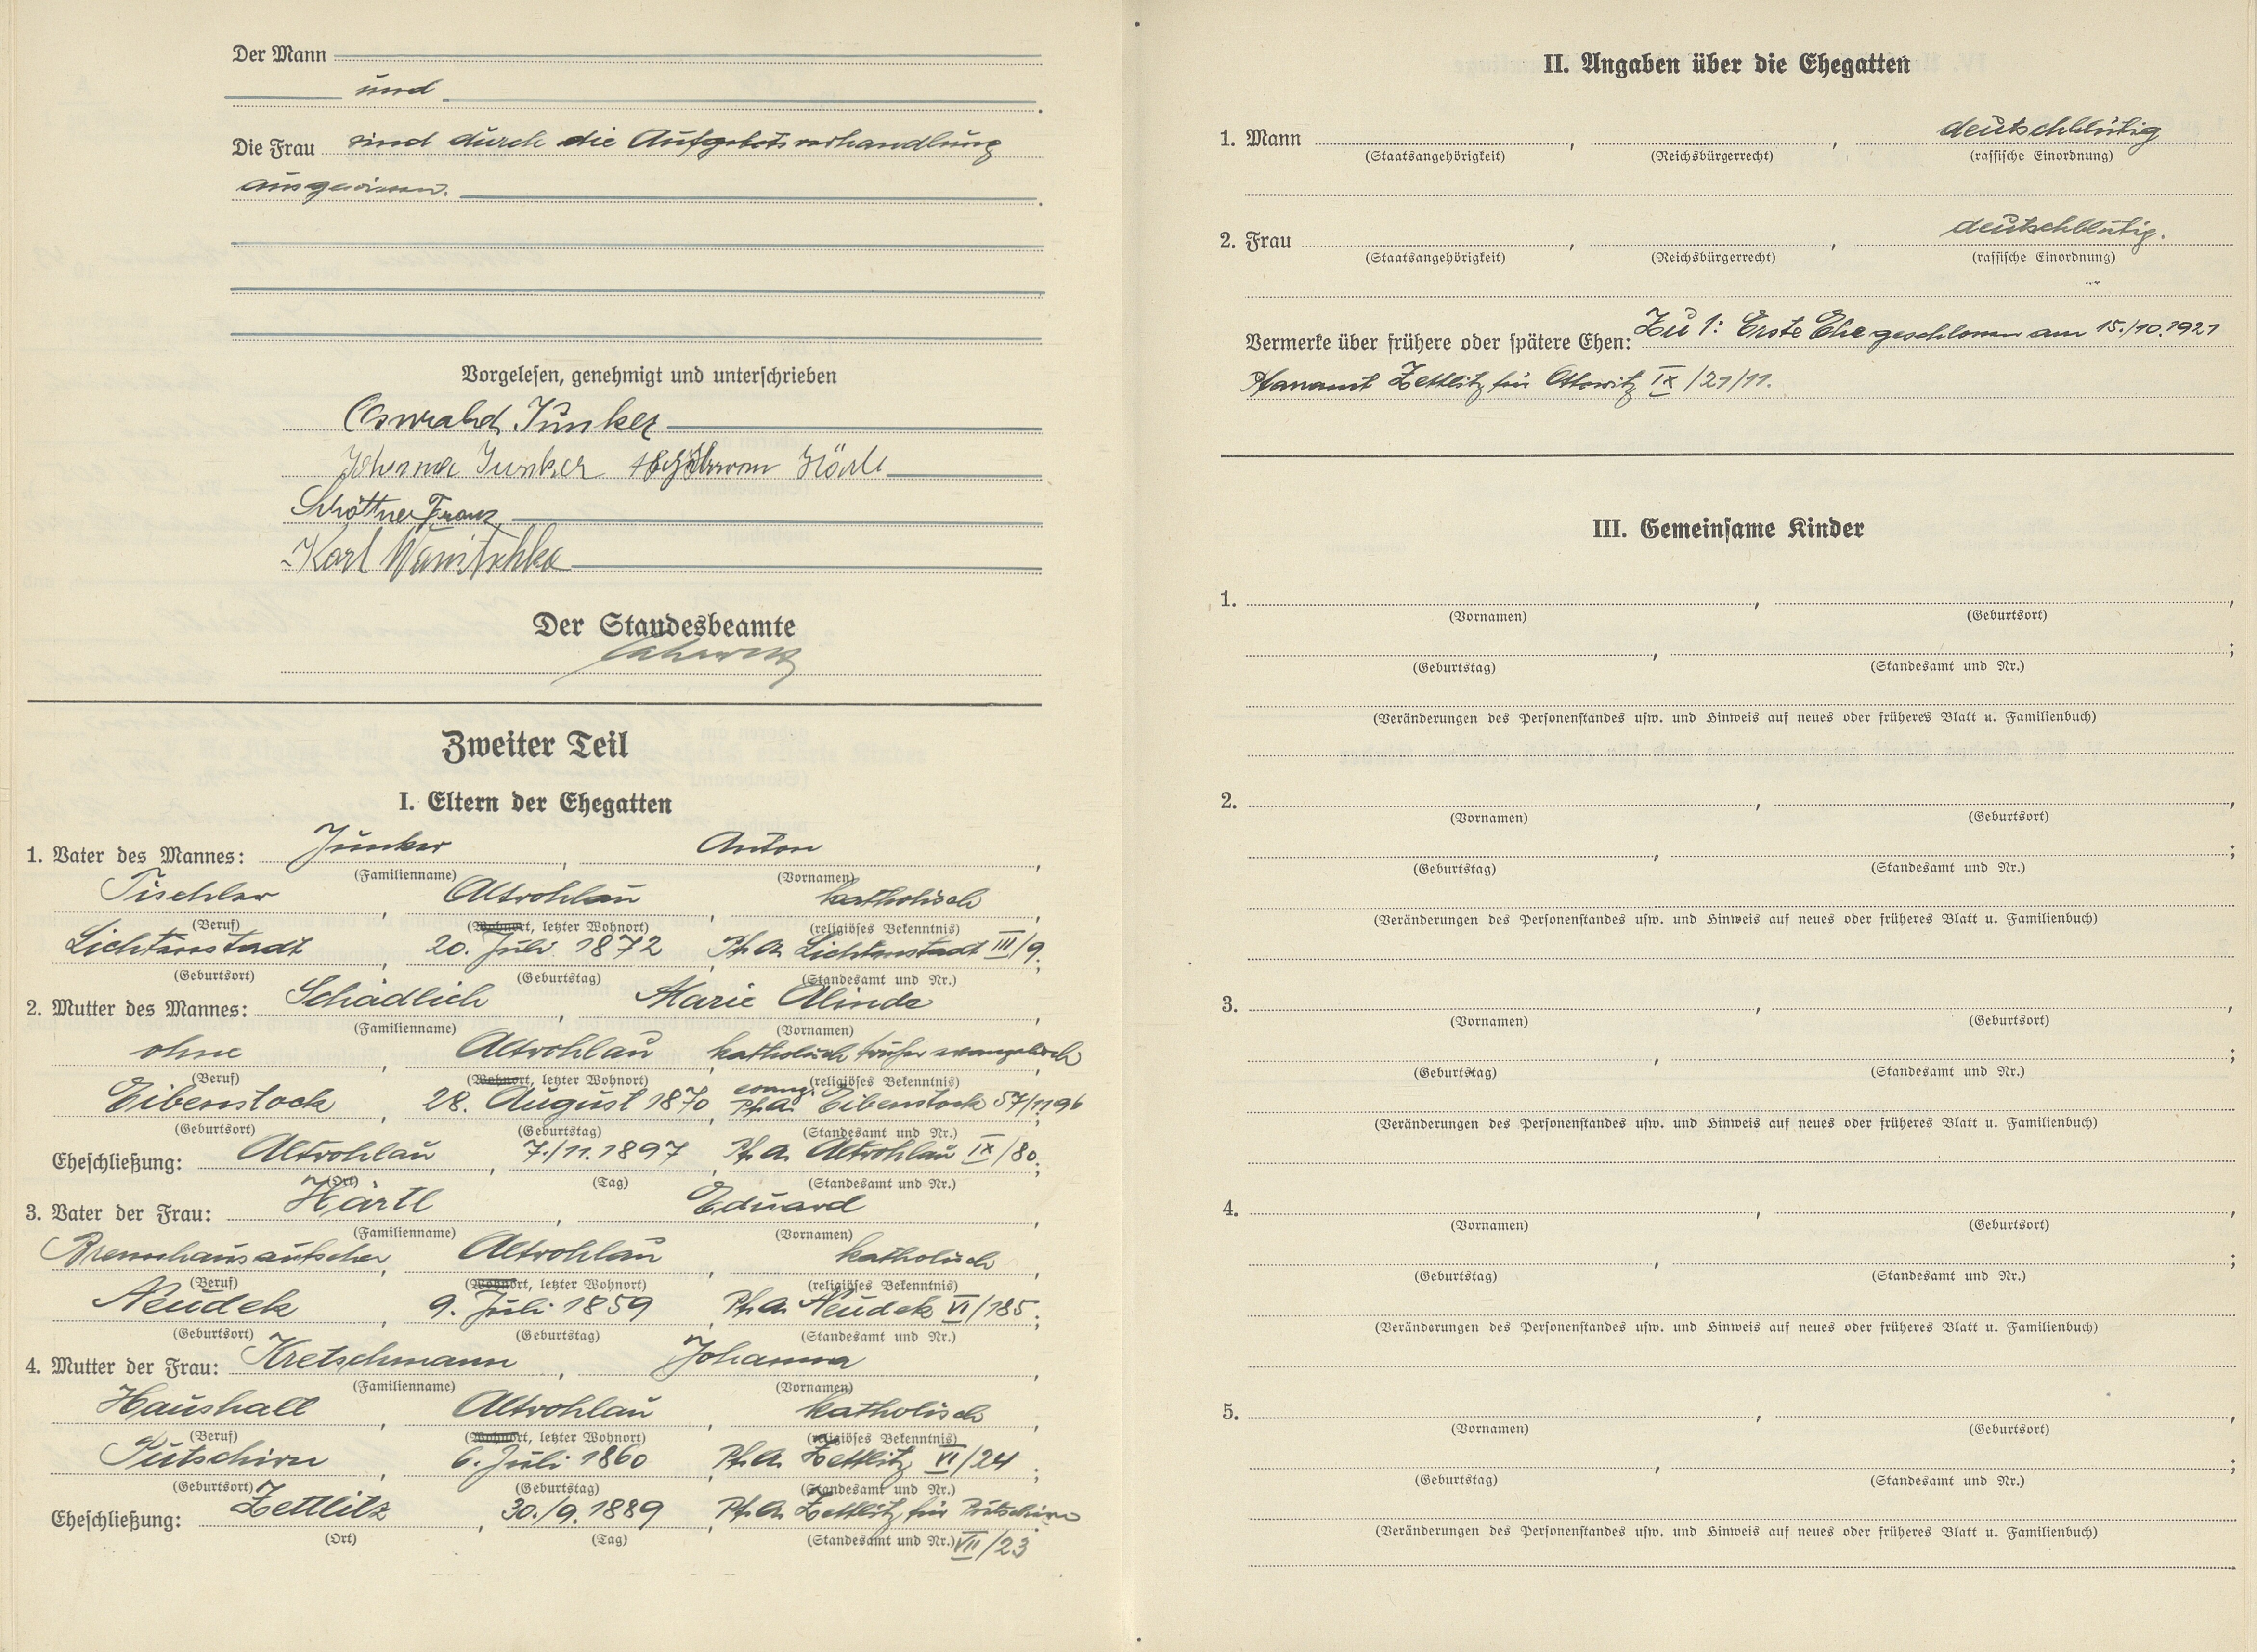 Der Mann
und .
Die Frau sind durch die Aufgebotsverhandlung
ausgewiesen. .
Vorgelesen, genehmigt und unterschrieben
Oswald Junker
Johanna Junker Härtl
Schöttner Franz
Karl Wanitschka
Der Standesbeamte
Zweiter Teil
I. Eltern der Ehegatten
1. Vater des Mannes: Junker , Anton ,
(Familienname) (Vornamen)
Tischler , Altrohlau , katholisch ,
(Beruf) (Wohnort, letzter Wohnort) (religiöses Bekenntnis)
Lichtenstadt , 20. Juli 1872 , Pf.A. Lichtenstadt III/9 ;
(Geburtsort) (Geburtstag) (Standesamt und Nr.)
2. Mutter des Mannes: Schädlich , Marie Alinde ,
(Familienname) (Vornamen)
ohne , Altrohlau , katholisch früher evangelisch ,
(Beruf) (Wohnort, letzter Wohnort) (religiöses Bekenntnis)
Eibenstock , 28. August 1870 , evang. Pf.A. Eibenstock 57/1196 ;
(Geburtsort) (Geburtstag) (Standesamt und Nr.)
Eheschließung: Altrohlau , 7./11.1897 , Pf.A. Altrohlau IX/80 ;
(Ort) (Tag) (Standesamt und Nr.)
3. Vater der Frau: Härtl , Eduard ,
(Familienname) (Vornamen)
Brennhausaufseher , Altrohlau , katholisch ,
(Beruf) (Wohnort, letzter Wohnort) (religiöses Bekenntnis)
Neudek , 9. Juli 1859 , Pf.A. Neudek VI/185 ;
(Geburtsort) (Geburtstag) (Standesamt und Nr.)
4. Mutter der Frau: Kretschmann , Johanna ,
(Familienname) (Vornamen)
Haushalt , Altrohlau , katholisch ,
(Beruf) (Wohnort, letzter Wohnort) (religiöses Bekenntnis)
Putschirn , 6. Juli 1860 , Pf.A. Zettlitz VI/24 ;
(Geburtsort) (Geburtstag) (Standesamt und Nr.)
Eheschließung: Zettlitz , 30./9.1889 , Pf.A. Zettlitz für Putschirn
(Ort) (Tag) (Standesamt und Nr.) VII/23
II. Angaben über die Ehegatten
1. Mann , , deutschblütig
(Staatsangehörigkeit) (Reichsbürgerrecht) (rassische Einordnung)
2. Frau , , deutschblütig.
(Staatsangehörigkeit) (Reichsbürgerrecht) (rassische Einordnung)
Vermerke über frühere oder spätere Ehen: Zu 1: Erste Ehe geschlossen am 15./10.1921
Pfarramt Zettlitz für Ottowitz IX/21/11.
III. Gemeinsame Kinder
1. , ,
(Vornamen) (Geburtsort)
, ;
(Geburtstag) (Standesamt und Nr.)
(Veränderungen des Personenstandes usw. und Hinweis auf neues oder früheres Blatt u. Familienbuch)
2. , ,
(Vornamen) (Geburtsort)
, ;
(Geburtstag) (Standesamt und Nr.)
(Veränderungen des Personenstandes usw. und Hinweis auf neues oder früheres Blatt u. Familienbuch)
3. , ,
(Vornamen) (Geburtsort)
, ;
(Geburtstag) (Standesamt und Nr.)
(Veränderungen des Personenstandes usw. und Hinweis auf neues oder früheres Blatt u. Familienbuch)
4. , ,
(Vornamen) (Geburtsort)
, ;
(Geburtstag) (Standesamt und Nr.)
(Veränderungen des Personenstandes usw. und Hinweis auf neues oder früheres Blatt u. Familienbuch)
5. , ,
(Vornamen) (Geburtsort)
, ;
(Geburtstag) (Standesamt und Nr.)
(Veränderungen des Personenstandes usw. und Hinweis auf neues oder früheres Blatt u. Familienbuch)